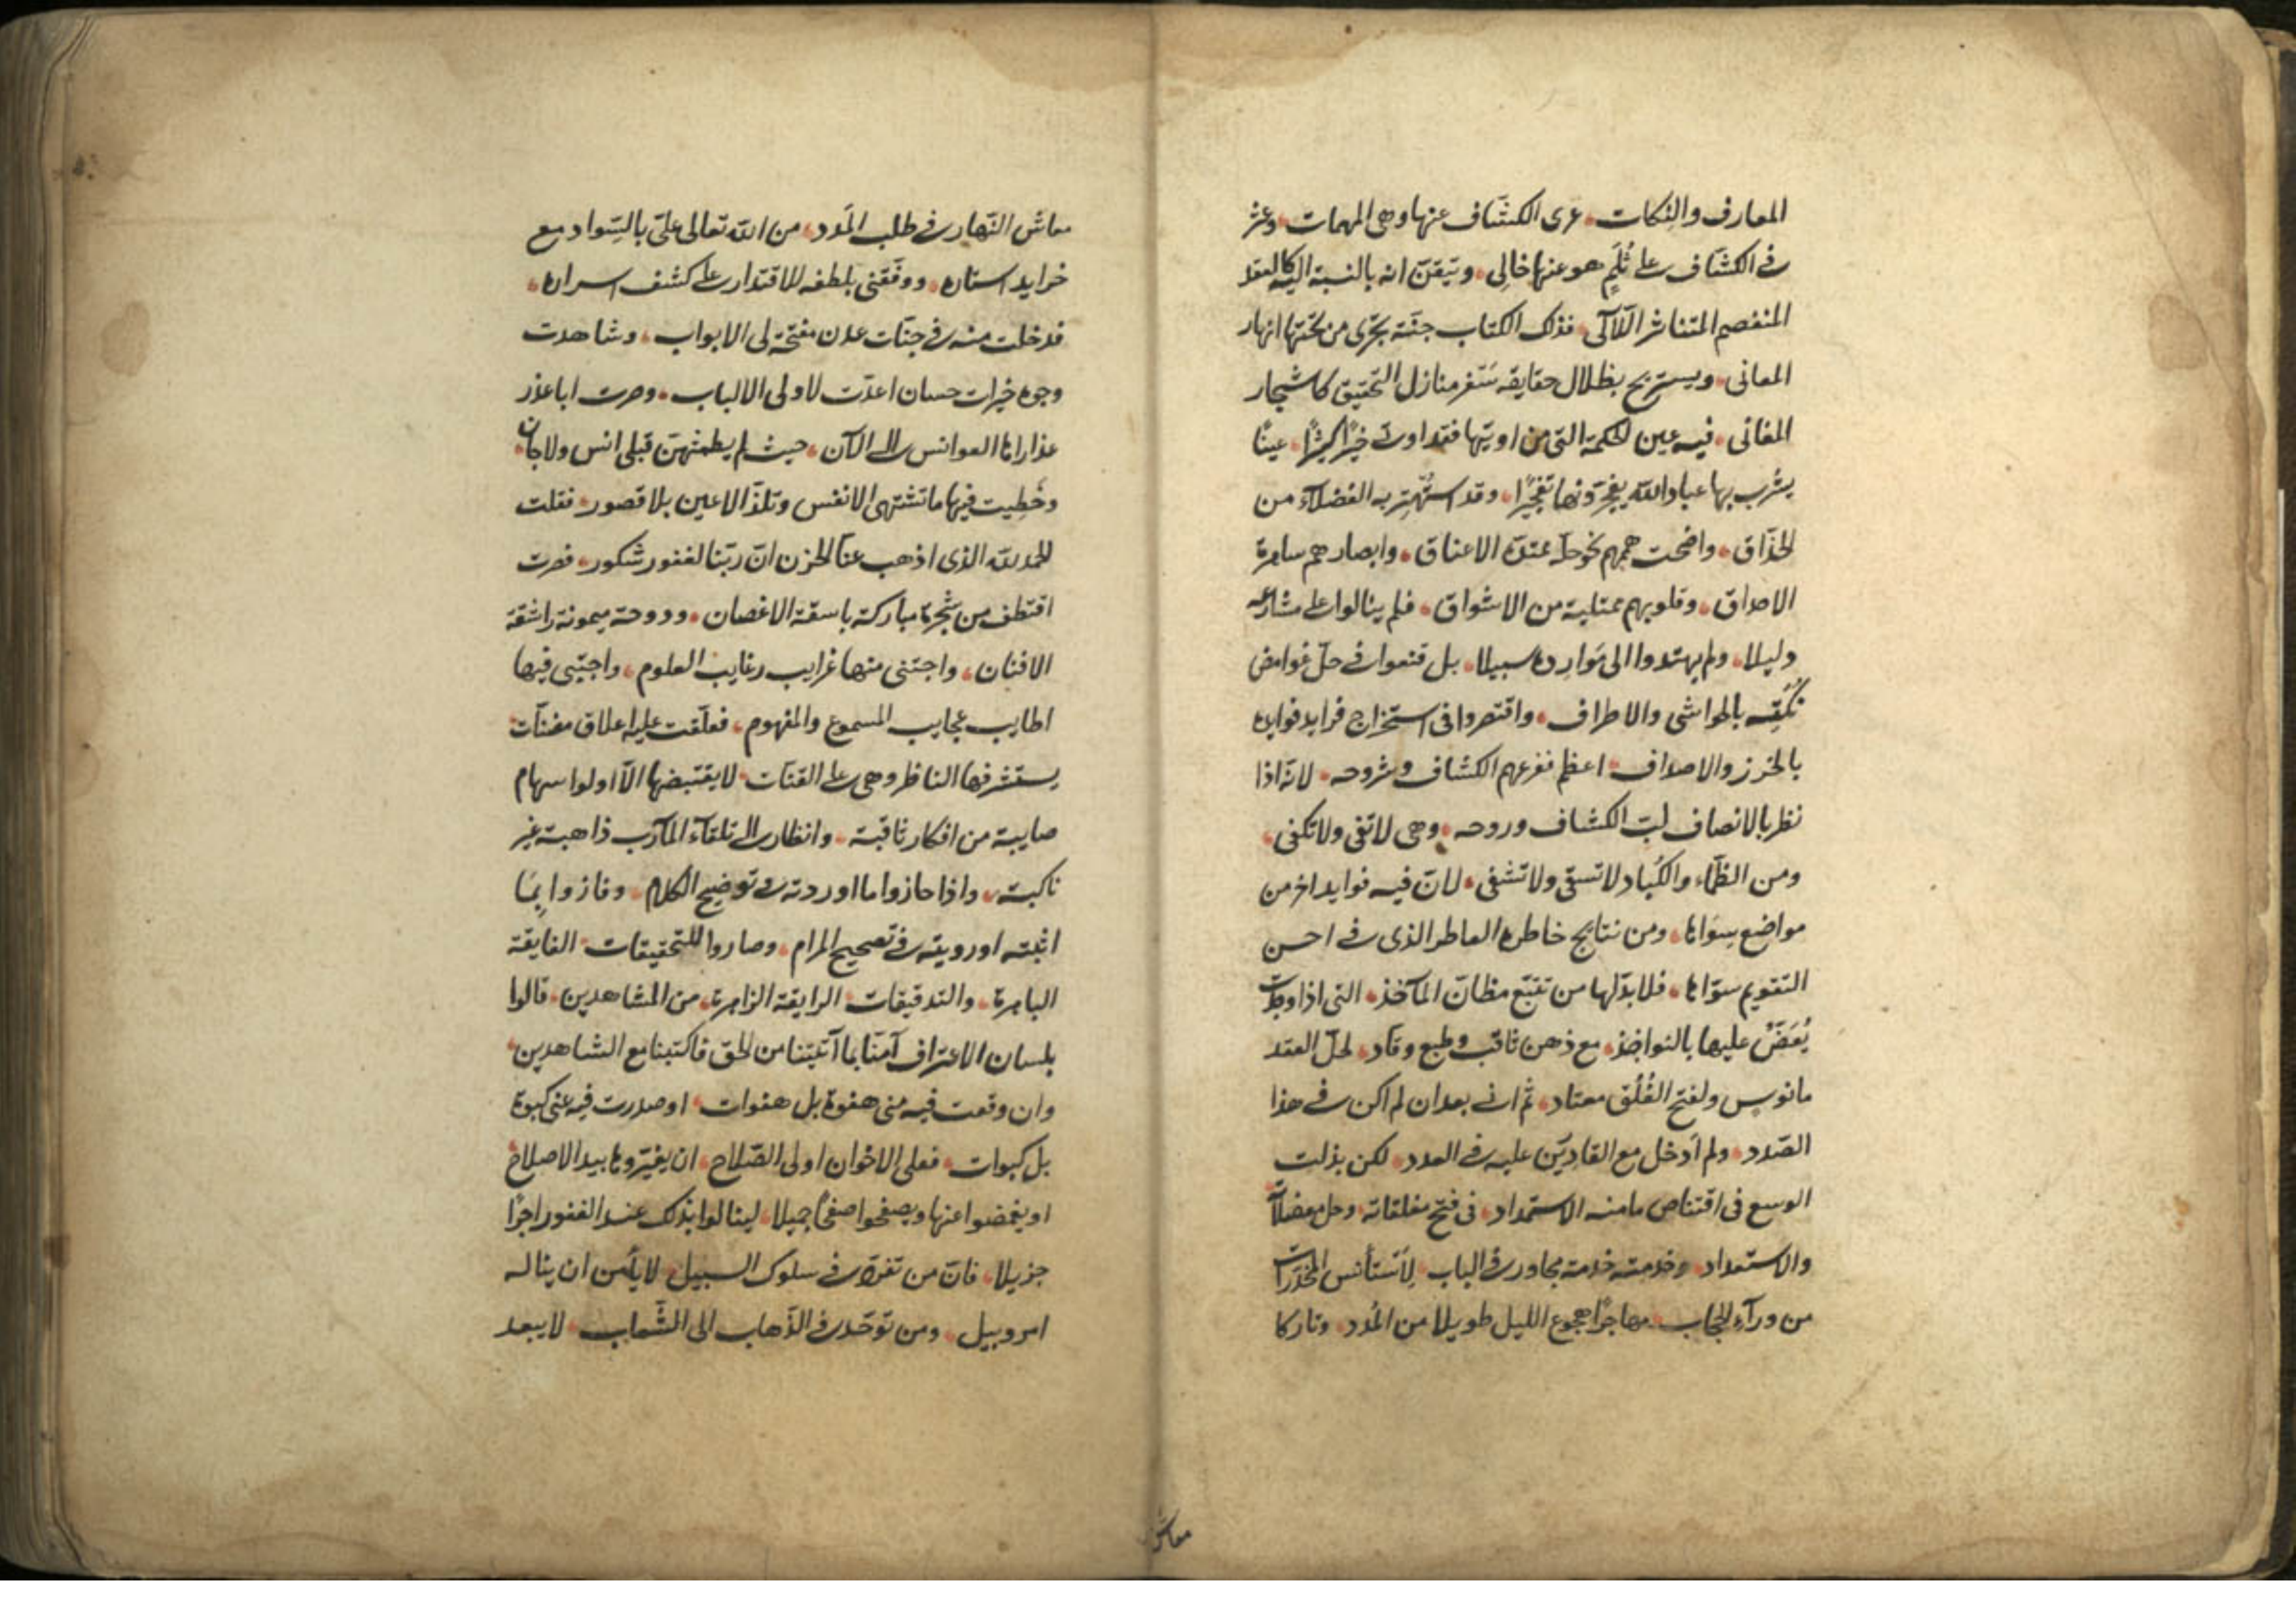 المعارف والنكات، عرى الكشّاف عنها وهى المهمات، وعثر
فى الكشّاف على ثُلَمٍ هو عنها خالِى، وتيقن انه بالنسبة اليه كالعقد
المنفصم المتناثر اللآلى، فذلك الكتاب جنّة تجرى من تحتها انهار
المعانى، ويستريح بظلال حقايقه سَفر منازل التحقيق كاشجار
المغانى، فيه عين الحكمة التى من اوتيها فقد اوتى خيرًا كثيرًا، عينًا
يشرب بها عباد الله يفجّرونها تفجيرًا، وقد استُهتر به الفضلاء من
الحذّاق، واضحت هممهم نحو حلّه ممتدّة الاعناق، وابصارهم ساهرة
الاحداق، وقلوبهم ممتلية من الاشواق، فلم ينالوا على مشارعه
دليلا، ولم يهتدوا الى مَوارِده سبيلا، بل قنعوا فى حلّ غوامض
نُكَتِه بالحواشى والاطراف، واقتصروا فى استخراج فرايد فوايده
بالخرز والاصداف، اعظم مفزعهم الكشاف وشروحه، لانه اذا
نظر بالانصاف لبّ الكشاف وروحه، وهى لا تفى ولا تكفى،
ومن الظمّاء والكُباد لا تسقى ولا تشفى، لانّ فيه فوايد اخر من
مواضع سِوَاها، ومن نتايج خاطره العاطر الذى فى احسن
التقويم سوّاها، فلا بدّ لها من تتبّع مظانّ المآخذ، التى اذا وجدت
يُعَضّ عليها بالنواجذ، مع ذهن ثاقب وطبع وقّاد، لحلّ العقد
مانوس ولفتح الغُلُق معتاد، ثم انى بعد ان لم اكن فى هذا
الصّدد، ولم اَدخل مع القادِرِين عليه فى العدد، لكن بذلت
الوسع فى اقتناص ما منه الاستمداد، فى فتح مغلقاته، وحل معضلاته
والاستعداد، وخدمته خدمة مجاور فى الباب، لِاَستأنس المخدّرات
من ورآء الحجاب، مهاجرًا هجوع الليل طويلا من المُدد، وتاركا
معاش
معاش النّهار فى طلب المَدد، من الله تعالى علىّ بالتسواد مع
خرايد استاره، ووفّقنى بلطفه للاقتدار على كشف اسراره،
فدخلت منه فى جنّات عدن مفتحة لى الابواب، وشاهدت
وجوه خيرات حسان اعدّت لاولى الالباب، وصرت ابا عذر
عذاراها العوانس الى الآن، حيث لم يطمثهنّ قبلى انس ولا جان،
وحَظِيت فيها ما تشتهى الانفس وتلذّ الاعين بلا قصور، فقلت
الحمد لله الذى اذهب عنّا الحزن انّ ربّنا لغفور شكور، فصرت
اقتطف من شجرة مباركة باسقة الاغصان، ودوحة ميمونة راشقة
الافنان، واجتنى منها غرايب رغايب العلوم، واجتبى فيها
اطايب عجايب المسموع والمفهوم، فعلّقت عليه اعلاق مضنّات
يستشرفها الناظر وهى على القنّات، لا يقتبضها الّا اولوا سهام
صايبة من افكار ثاقبة، وانظار الى تلقآء المآرب ذاهبة غير
ناكبة، واذا حازوا ما اوردته فى توضيح الكلام، وفازوا بِمَا
اثبته او رويته فى تصحيح المرام، وصاروا للتحقيقات الفايقة
الباهرة، والتدقيقات الرايقة الزاهرة، من المشاهدين، قالوا
بلسان الاعتراف آمنّا بما آتيتنا من الحق فاكتبنا مع الشاهدين،
وان وقعت فيه منى هفوة بل هفوات، او صدرت فيه عنى كبوة
بل كبوات، فعلى الاخوان اولى الصّلاح، ان يغيّروها بيد الاصلاح
او يغمضوا عنها ويصفحوا صفحًا جميلا، لينالوا بذلك عند الغفور اجرًا
جزيلا، فانّ من تفرّد فى سلوك السبيل، لا يأمن ان يناله
امر وبيل، ومن توحّد فى الذّهاب الى الشّعاب، لا يبعد